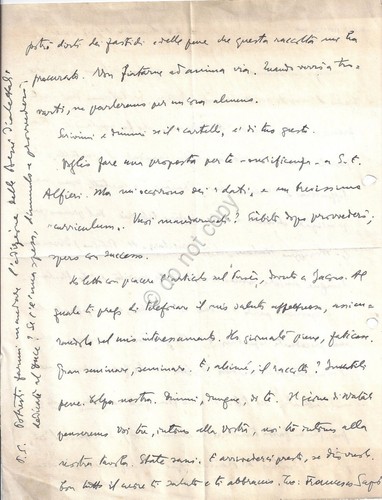 potrà dirti dei fastidi e delle pene che questa raccolta mi ha
procurato. Non fiatarne ad anima viva. Quando verrò a tro-
varti, ne parleremo per un'ora almeno.
Scrivimi e dimmi se il "cartello" è di tuo gusto.
Voglio fare una proposta per te a S. E.
Alfieri. Ma mi occorrono dei dati e un brevissimo
"curriculum". Vuoi mandarmeli? Subito dopo provvederò,
spero con successo.
Ho letto con piacere l'articolo dovuto a
quale ti prego di telefonare il mio saluto affettuoso, assicu-
randolo del mio interessamento. Ho giornate piene, faticose.
Gran seminare, seminare. E, ahimè, il raccolto? Inutili
pene. Colpa nostra. Dimmi, dunque, di te. Il giorno di Natale
penseremo voi tre, intorno alla vostra, noi tre intorno alla
nostra tavola. State sani. E arrivederci presto, se Dio vuole.
Con tutto il cuore ti saluto e ti abbraccio. Tuo Francesco
P.S. Potresti farmi mandare l'edizione delle
dedicate al Duce? Se c'è una spesa, dimmelo e provvederò.
© do not copy